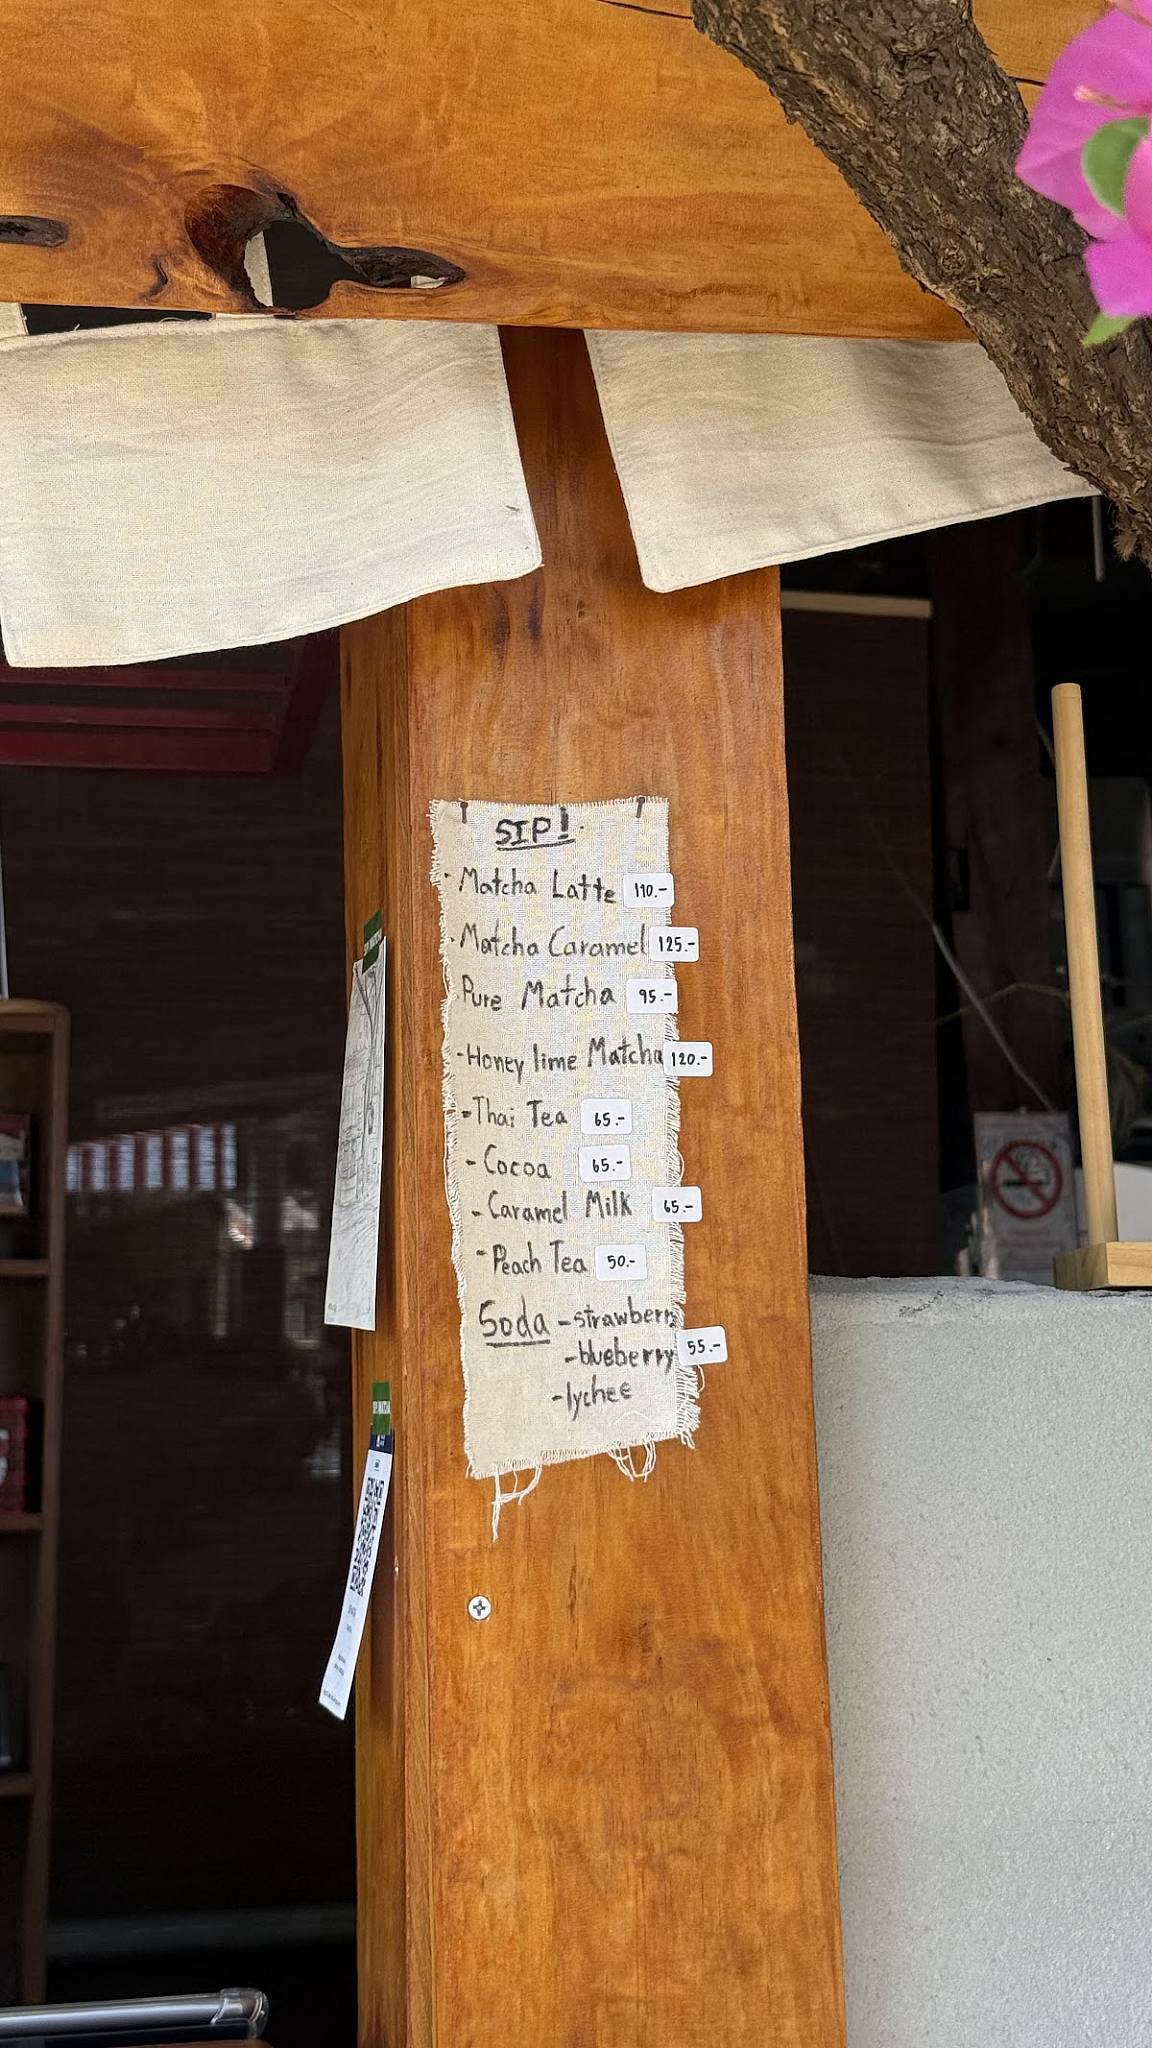 SIP!
- Matcha Latte 110.-
- Matcha Caramel 125.-
- Pure Matcha 95.-
- Honey lime Matcha 120.-
- Thai Tea 65.-
- Cocoa 65.-
- Caramel Milk 65.-
- Peach Tea 50.-
Soda - strawberry
- blueberry 55.-
- lychee